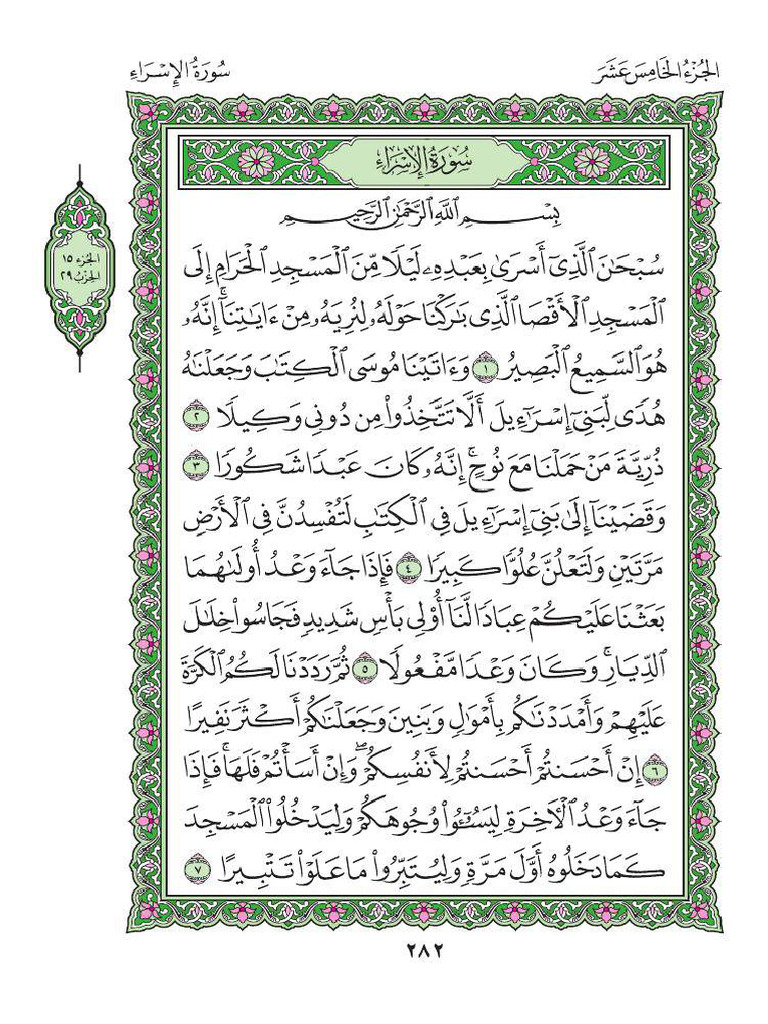 الجزء الخامس عشر
سورة الإسراء
سُورَةُ الإِسْرَاءِ
بِسْمِ ٱللَّهِ ٱلرَّحْمَٰنِ ٱلرَّحِيمِ
سُبْحَٰنَ ٱلَّذِىٓ أَسْرَىٰ بِعَبْدِهِۦ لَيْلًا مِّنَ ٱلْمَسْجِدِ ٱلْحَرَامِ إِلَى
ٱلْمَسْجِدِ ٱلْأَقْصَا ٱلَّذِى بَٰرَكْنَا حَوْلَهُۥ لِنُرِيَهُۥ مِنْ ءَايَٰتِنَآ ۚ إِنَّهُۥ
هُوَ ٱلسَّمِيعُ ٱلْبَصِيرُ ١ وَءَاتَيْنَا مُوسَى ٱلْكِتَٰبَ وَجَعَلْنَٰهُ
هُدًى لِّبَنِىٓ إِسْرَٰٓءِيلَ أَلَّا تَتَّخِذُوا۟ مِن دُونِى وَكِيلًا ٢
ذُرِّيَّةَ مَنْ حَمَلْنَا مَعَ نُوحٍ ۚ إِنَّهُۥ كَانَ عَبْدًا شَكُورًا ٣
وَقَضَيْنَآ إِلَىٰ بَنِىٓ إِسْرَٰٓءِيلَ فِى ٱلْكِتَٰبِ لَتُفْسِدُنَّ فِى ٱلْأَرْضِ
مَرَّتَيْنِ وَلَتَعْلُنَّ عُلُوًّا كَبِيرًا ٤ فَإِذَا جَآءَ وَعْدُ أُولَىٰهُمَا
بَعَثْنَا عَلَيْكُمْ عِبَادًا لَّنَآ أُو۟لِى بَأْسٍ شَدِيدٍ فَجَاسُوا۟ خِلَٰلَ
ٱلدِّيَارِ ۚ وَكَانَ وَعْدًا مَّفْعُولًا ٥ ثُمَّ رَدَدْنَا لَكُمُ ٱلْكَرَّةَ
عَلَيْهِمْ وَأَمْدَدْنَٰكُم بِأَمْوَٰلٍ وَبَنِينَ وَجَعَلْنَٰكُمْ أَكْثَرَ نَفِيرًا
٦ إِنْ أَحْسَنتُمْ أَحْسَنتُمْ لِأَنفُسِكُمْ ۖ وَإِنْ أَسَأْتُمْ فَلَهَا ۚ فَإِذَا
جَآءَ وَعْدُ ٱلْءَاخِرَةِ لِيَسُـۥٓـُٔوا۟ وُجُوهَكُمْ وَلِيَدْخُلُوا۟ ٱلْمَسْجِدَ
كَمَا دَخَلُوهُ أَوَّلَ مَرَّةٍ وَلِيُتَبِّرُوا۟ مَا عَلَوْا۟ تَتْبِيرًا ٧
الجزء ١٥
الحزب ٢٩
٢٨٢